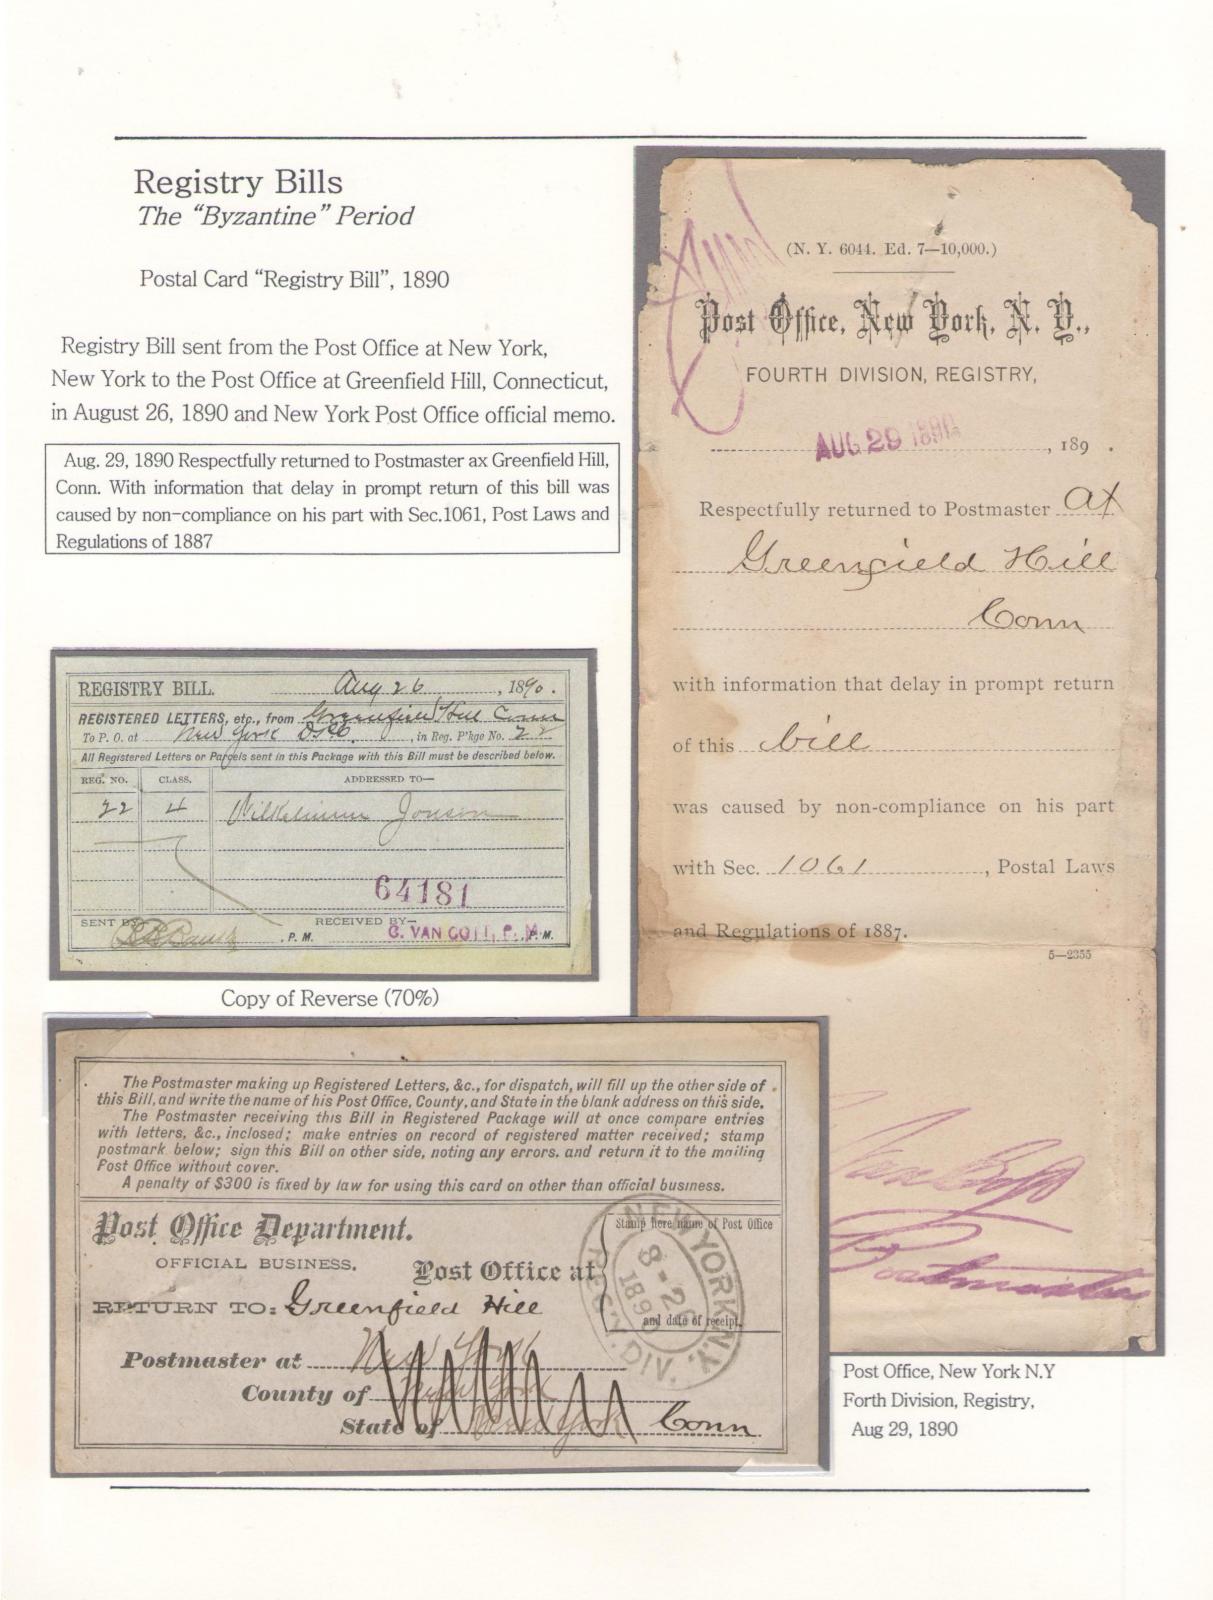 Registry Bills
The “Byzantine” Period
Postal Card “Registry Bill”, 1890
Registry Bill sent from the Post Office at New York,
New York to the Post Office at Greenfield Hill, Connecticut,
in August 26, 1890 and New York Post Office official memo.
Aug. 29, 1890 Respectfully returned to Postmaster ax Greenfield Hill,
Conn. With information that delay in prompt return of this bill was
caused by non-compliance on his part with Sec.1061, Post Laws and
Regulations of 1887
(N. Y. 6044. Ed. 7—10,000.)
Post Office, New York, N. Y.,
FOURTH DIVISION, REGISTRY,
AUG 29 1890, 189 .
Respectfully returned to Postmaster at
Greenfield Hill
Conn
with information that delay in prompt return
of this bill
was caused by non-compliance on his part
with Sec. 1061, Postal Laws
and Regulations of 1887.
5—2355
Van Cott
Postmaster
REGISTRY BILL. Aug 26, 1890.
REGISTERED LETTERS, etc., from Greenfield Hill Conn
To P. O. at New York, in Reg. P'kge No. 22
All Registered Letters or Parcels sent in this Package with this Bill must be described below.
REG. NO. CLASS. ADDRESSED TO—
22 4 Wilhelmina Jonson
64181
SENT BY RECEIVED BY—
, P. M. C. VAN COTT, P. M. , P. M.
Copy of Reverse (70%)
The Postmaster making up Registered Letters, &c., for dispatch, will fill up the other side of
this Bill, and write the name of his Post Office, County, and State in the blank address on this side.
The Postmaster receiving this Bill in Registered Package will at once compare entries
with letters, &c., inclosed; make entries on record of registered matter received; stamp
postmark below; sign this Bill on other side, noting any errors, and return it to the mailing
Post Office without cover.
A penalty of $300 is fixed by law for using this card on other than official business.
Post Office Department.
OFFICIAL BUSINESS.
Post Office at
Stamp here name of Post Office
and date of receipt.
NEW YORK, N.Y.
8-26
1890
REG'Y. DIV.
RETURN TO: Greenfield Hill
Postmaster at New York
County of New York
State of New York Conn
Post Office, New York N.Y
Forth Division, Registry,
Aug 29, 1890